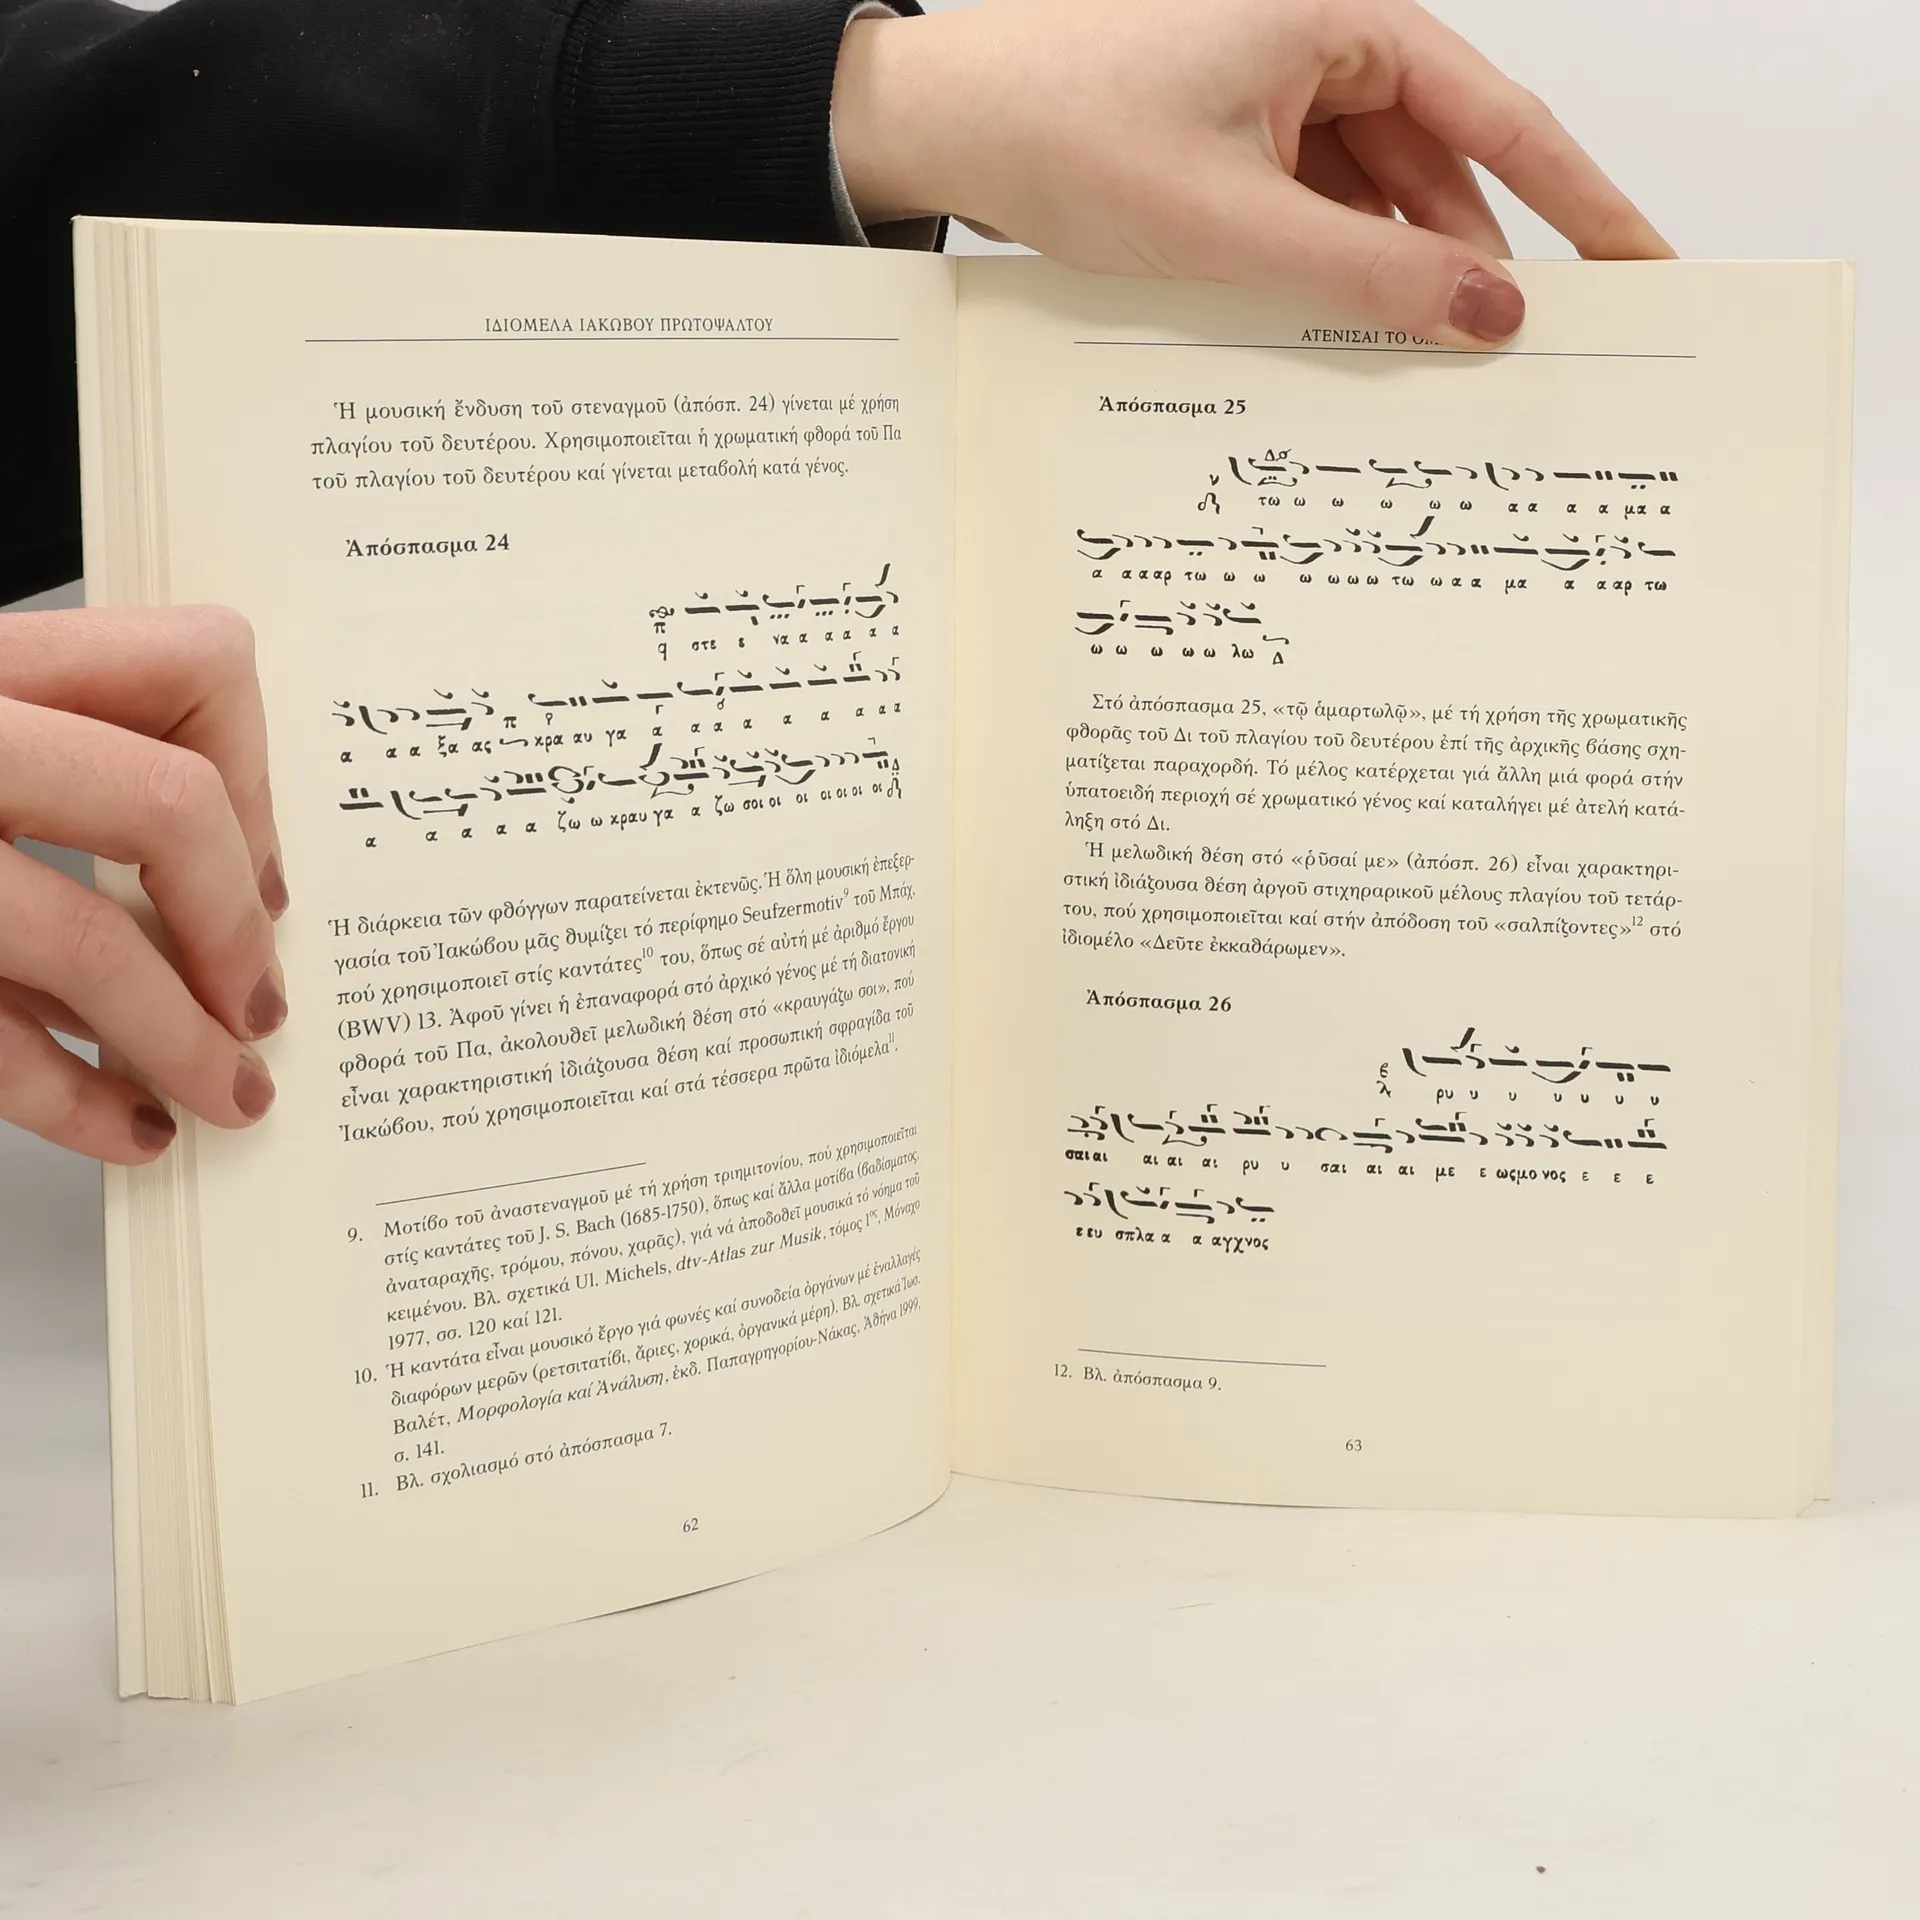 ΙΔΙΟΜΕΛΑ ΙΑΚΩΒΟΥ ΠΡΩΤΟΨΑΛΤΟΥ
Ἡ μουσική ἔνδυση τοῦ στεναγμοῦ (ἀπόσπ. 24) γίνεται μέ χρήση
πλαγίου τοῦ δευτέρου. Χρησιμοποιεῖται ἡ χρωματική φθορά τοῦ Πα
τοῦ πλαγίου τοῦ δευτέρου καί γίνεται μεταβολή κατά γένος.
Ἀπόσπασμα 24
στε ε να α α α α α
α α α ξα ας κρα αυ γα α α α α α α α α α
α α α α α ζω ω κραυ γα α ζω σοι οι οι οι οι οι οι
Ἡ διάρκεια τῶν φθόγγων παρατείνεται ἐκτενῶς. Ἡ ὅλη μουσική ἐπεξερ-
γασία τοῦ Ἰακώβου μᾶς θυμίζει τό περίφημο Seufzermotiv⁹ τοῦ Μπάχ,
πού χρησιμοποιεῖ στίς καντάτες¹⁰ του, ὅπως σέ αὐτή μέ ἀριθμό ἔργου
(BWV) 13. Ἀφοῦ γίνει ἡ ἐπαναφορά στό ἀρχικό γένος μέ τή διατονική
φθορά τοῦ Πα, ἀκολουθεῖ μελωδική θέση στό «κραυγάζω σοι», πού
εἶναι χαρακτηριστική ἰδιάζουσα θέση καί προσωπική σφραγίδα τοῦ
Ἰακώβου, πού χρησιμοποιεῖται καί στά τέσσερα πρῶτα ἰδιόμελα¹¹.
9. Μοτίβο τοῦ ἀναστεναγμοῦ μέ τή χρήση τριημιτονίου, πού χρησιμοποιεῖται
στίς καντάτες τοῦ J. S. Bach (1685-1750), ὅπως καί ἄλλα μοτίβα (βαδίσματος,
ἀναταραχῆς, τρόμου, πόνου, χαρᾶς), γιά νά ἀποδοθεῖ μουσικά τό νόημα τοῦ
κειμένου. Βλ. σχετικά Ul. Michels, dtv-Atlas zur Musik, τόμος 1ος, Μόναχο
1977, σσ. 120 καί 121.
10. Ἡ καντάτα εἶναι μουσικό ἔργο γιά φωνές καί συνοδεία ὀργάνων μέ ἐναλλαγές
διαφόρων μερῶν (ρετσιτατίβι, ἄριες, χορικά, ὀργανικά μέρη). Βλ. σχετικά Ἰωσ.
Βαλέτ, Μορφολογία καί Ἀνάλυση, ἐκδ. Παπαγρηγορίου-Νάκας, Ἀθήνα 1999,
σ. 141.
11. Βλ. σχολιασμό στό ἀπόσπασμα 7.
62
ΑΤΕΝΙΣΑΙ ΤΟ
Ἀπόσπασμα 25
τω ω ω ω ω ω α α α α μα α
α α α αρ τω ω ω ω ω ω ω τω ω α α μα α α αρ τω
ω ω ω ω ω λω Δ
Στό ἀπόσπασμα 25, «τῷ ἁμαρτωλῷ», μέ τή χρήση τῆς χρωματικῆς
φθορᾶς τοῦ Δι τοῦ πλαγίου τοῦ δευτέρου ἐπί τῆς ἀρχικῆς βάσης σχη-
ματίζεται παραχορδή. Τό μέλος κατέρχεται γιά ἄλλη μιά φορά στήν
ὑπατοειδή περιοχή σέ χρωματικό γένος καί καταλήγει μέ ἀτελή κατά-
ληξη στό Δι.
Ἡ μελωδική θέση στό «ῥῦσαί με» (ἀπόσπ. 26) εἶναι χαρακτηρι-
στική ἰδιάζουσα θέση ἀργοῦ στιχηραρικοῦ μέλους πλαγίου τοῦ τετάρ-
του, πού χρησιμοποιεῖται καί στήν ἀπόδοση τοῦ «σαλπίζοντες»¹² στό
ἰδιομέλο «Δεῦτε ἐκκαθάρωμεν».
Ἀπόσπασμα 26
ρυ υ υ υ υ υ υ
σαι αι αι αι αι ρυ υ σαι αι αι με ε ως μο νος ε ε ε
ε ευ σπλα α α αγχνος
12. Βλ. ἀπόσπασμα 9.
63